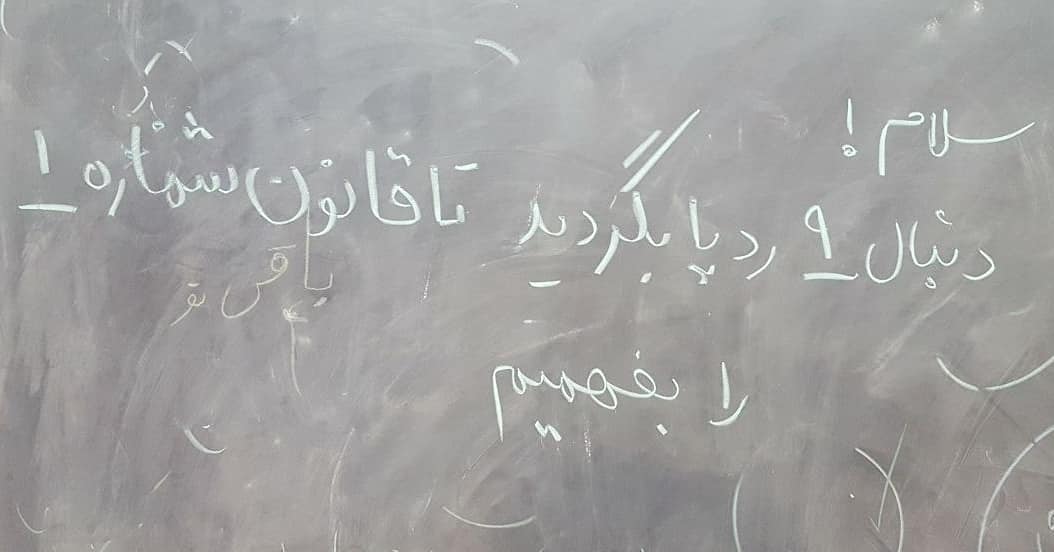 سلام!
دنبال ۹ رد پا بگردید تا قانون شماره ۱
را بفهمیم